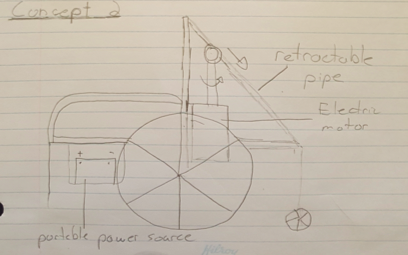 Concept 2
retractable
pipe
Electric
motor
+ -
portable power source